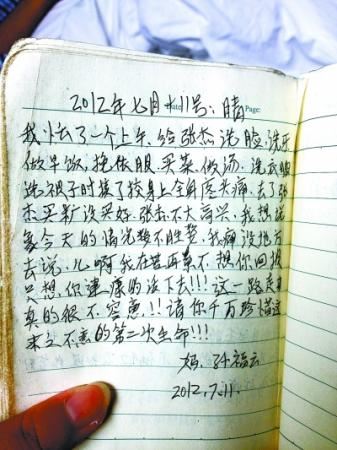 2012年七月十11号、晴
Date: Page:
我忙了一个上午、给张杰洗脸、洗牙
做早饭、挽依服、买菜、做汤、洗衣服
洗被子时接了较身上全身疼头痛、去了张
杰买没买好、张杰不大高兴、我想
今天的情况、我痛没地方
去说、儿啊我在苦再累不想你回报
只想你健康的活下去!!!这一路走来
真的很不容易!!请你千万珍惜这
来之不易的第二次生命!!!
妈、孙福云
2012.7.11.